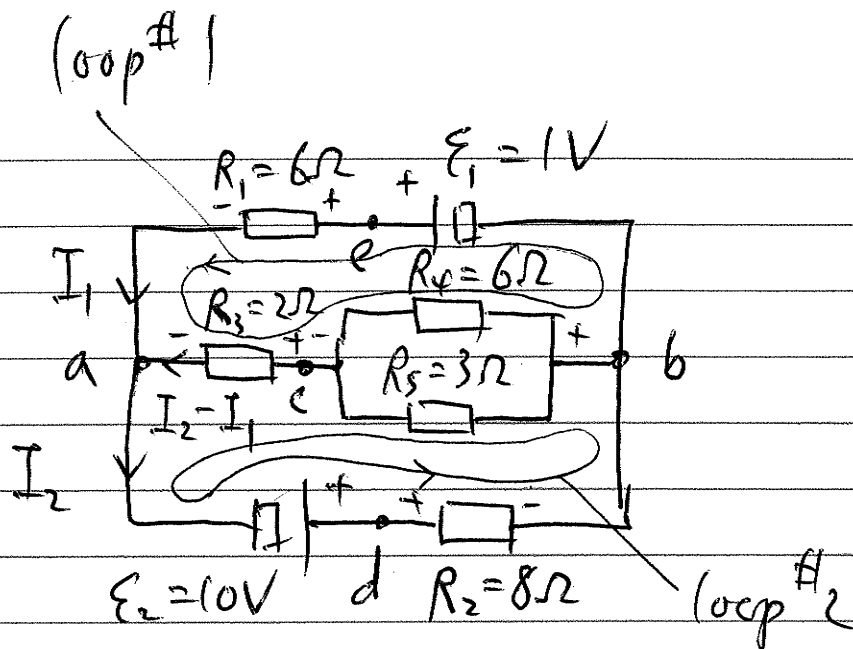 loop #1
R₁ = 6Ω
ℰ₁ = 1V
- + +
e
I₁
R₄ = 6Ω
R₃ = 2Ω
- + - +
a
b
c
R₅ = 3Ω
I₂ - I₁
I₂
+ + -
ℰ₂ = 10V
d
R₂ = 8Ω
loop #2